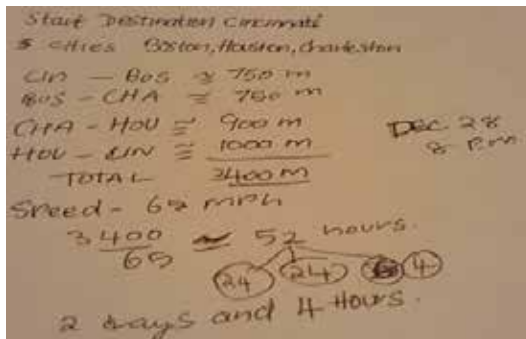 Start Destination Cincinnati
5 cities Boston, Houston, Charleston
CIN - BOS ≅ 750 m
BOS - CHA ≅ 750 m
CHA - HOU ≅ 900 m
DEC 28
8 P.m
HOU - CIN ≅ 1000 m
TOTAL 3400 m
Speed - 65 mph
3400 ≈ 52 hours.
65
24 24 4
2 days and 4 Hours.